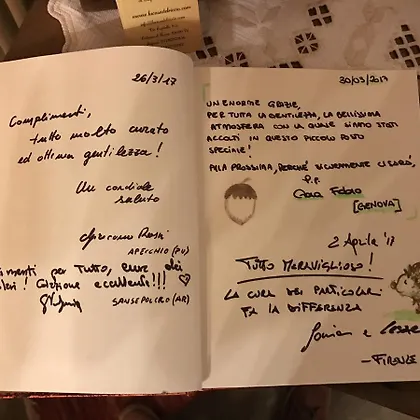 26/3/17
Complimenti,
tutto molto curato
ed ottima gentilezza!
Un cordiale
saluto
APECCHIO (PU)
per Tutto,
!!!
SANSEPOLCRO (AR)
30/03/2017
UN ENORME GRAZIE,
PER TUTTA LA GENTILEZZA, LA BELLISSIMA
ATMOSFERA CON LA QUALE SIAMO STATI
ACCOLTI IN QUESTO PICCOLO POSTO
SPECIALE!
ALLA PROSSIMA, PERCHÉ SICURAMENTE CI SARÀ,
Fabio
[GENOVA]
2 Aprile '17
TUTTO MERAVIGLIOSO!
LA CURA DEI PARTICOLARI
FA LA DIFFERENZA
e
- FIRENZE